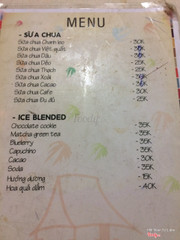 MENU
- SỮA CHUA
Sữa chua Chanh leo - 30K
Sữa chua Việt quất - 30K
Sữa chua Dâu - 25K
Sữa chua Dẻo - 25K
Sữa chua Thạch - 25K
Sữa chua Xoài - 35K
Sữa chua Cacao - 30K
Sữa chua Cafe - 30K
Sữa chua Đu đủ - 25K
- ICE BLENDED
Chocolate cookie - 35K
Matcha green tea - 35K
Blueberry - 35K
Capuchino - 35K
Cacao - 30K
Soda - 35K
Hướng dương - 15K
Hoa quả dầm - 40K